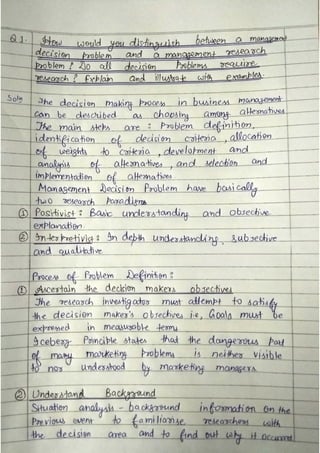 Q1. How would you distinguish between a managerial
decision problem and a management research
problem? Do all decision Problems require
research? Explain and illustrate with examples.
Soln The decision making Process in business management
can be described as choosing among alternatives
The main steps are : Problem definition,
identification of decision criteria, allocation
of weights to criteria, development and
analysis of alternatives, and selection and
implementation of alternatives
Management Decision Problem have basically
two research Paradigms
① Positivist : Basic understanding and objective
explanation.
② Interpretivist : In depth understanding, subjective
and qualitative
Process of Problem Definition :
① Ascertain the decision makers objectives
The research investigator must attempt to satisfy
the decision maker's objectives i.e, Goals must be
expressed in measurable terms
Iceberg Principle states that the dangerous Part
of many marketing Problems is neither visible
to nor understood by marketing managers
② Understand Background
Situation analysis - background information on the
Previous event to familiarise researchers with
the decision area and to find out why it occurred